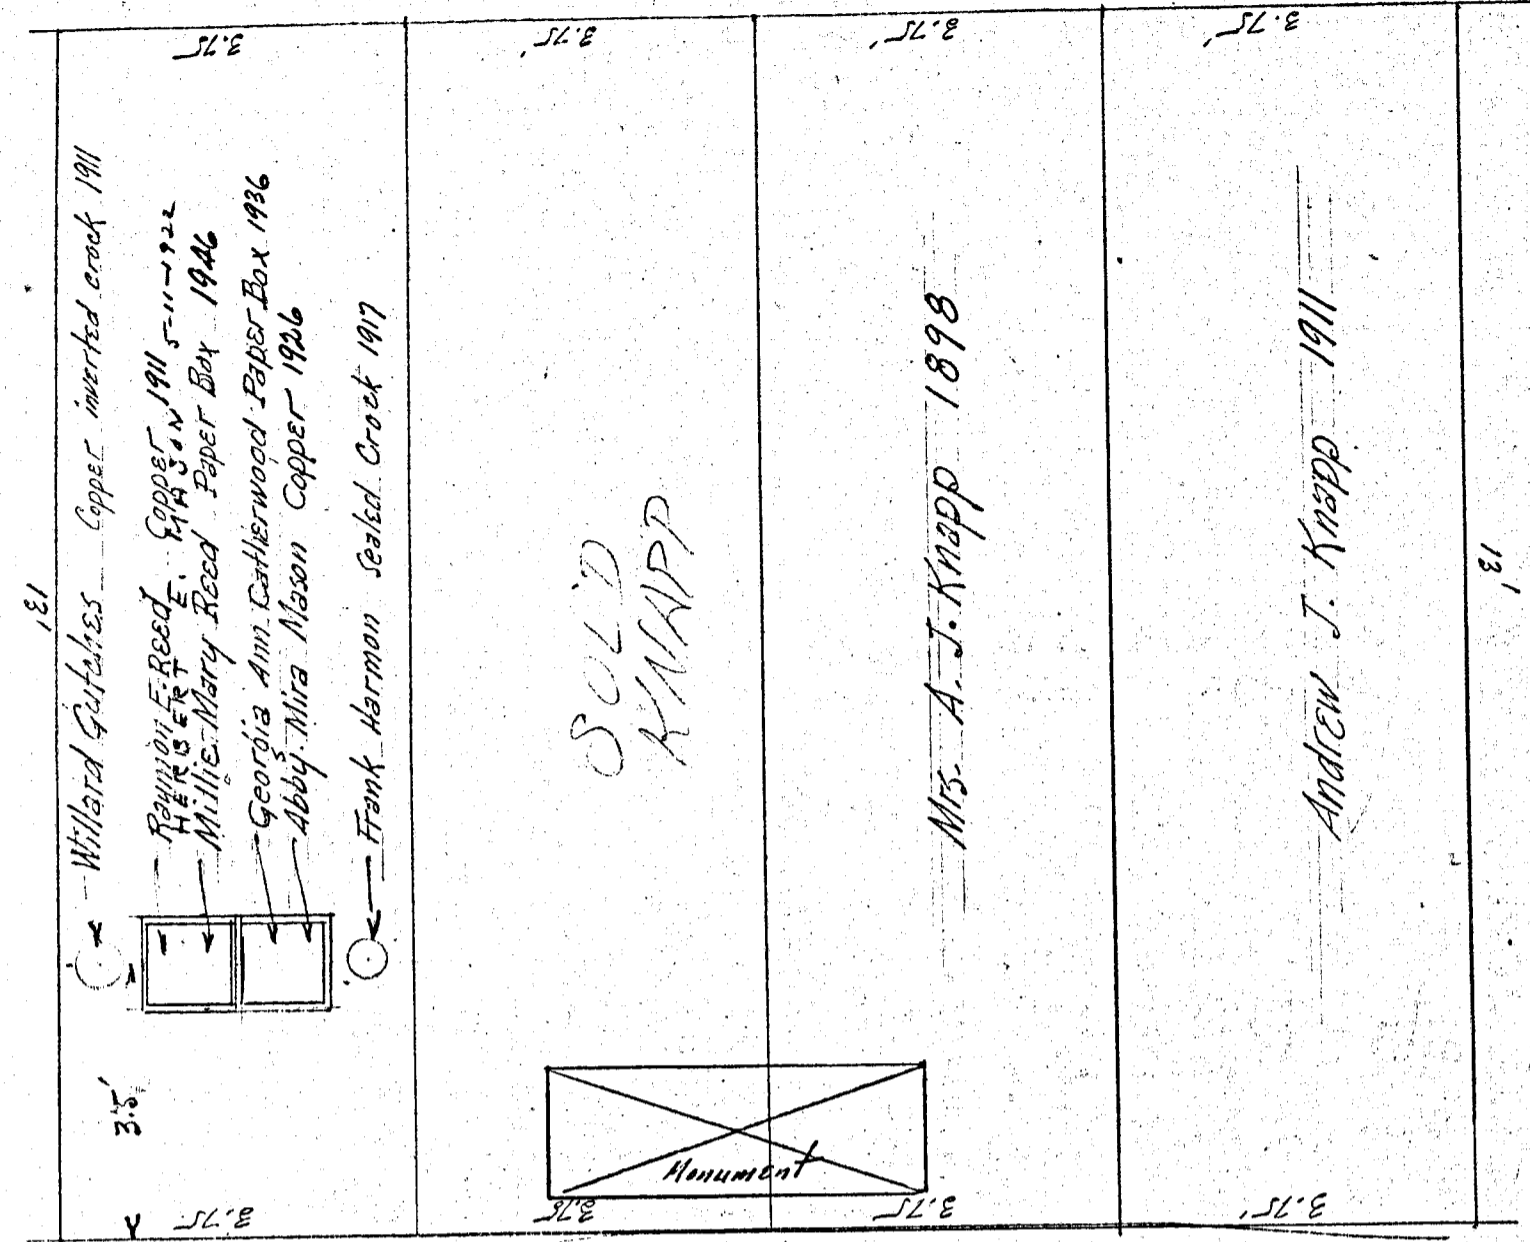 3.75'
3.75'
3.75'
3.75'
13'
Willard Gutches Copper inverted crock 1911
Raymon E. Reed Copper 1911
HERBERT E. MASON 5-11-1922
Millie Mary Reed Paper Box 1946
Georgia Ann Catherwood Paper Box 1936
Abby Mira Mason Copper 1926
Frank Harmon Sealed Crock 1917
SOLD
KNAPP
Mrs. A. J. Knapp 1898
Andrew J. Knapp 1911
13'
3.5'
Monument
3.75
3.75
3.75'
3.75'